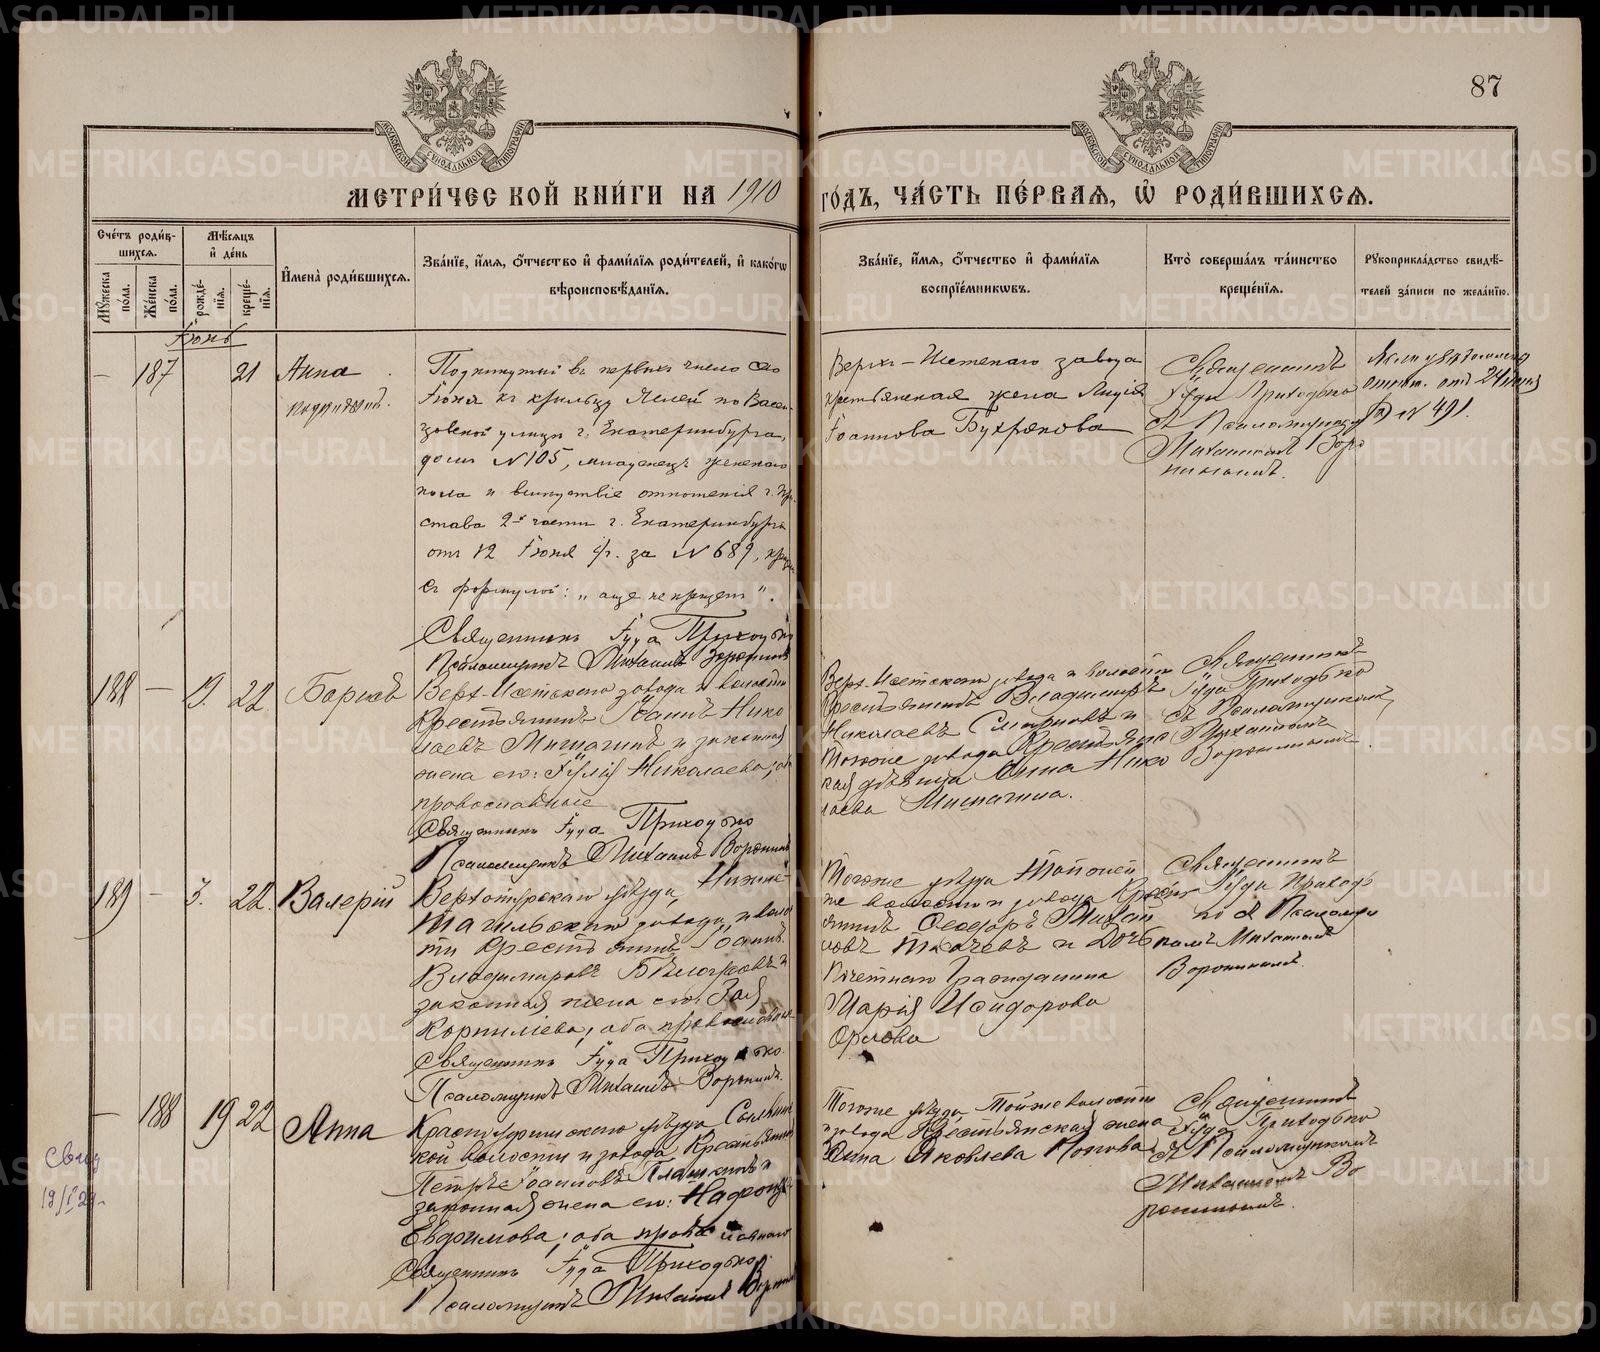 87
МОСКОВСКОЙ СѴНОДАЛЬНОЙ ТИПОГРАФІИ
МОСКОВСКОЙ СѴНОДАЛЬНОЙ ТИПОГРАФІИ
МЕТРИ́ЧЕСКОЙ КНИ́ГИ НА 1910
ГО́ДЪ, ЧА́СТЬ ПЕ́РВАѦ, Ѡ҆ РОДИ́ВШИХСѦ.
Сче́тъ роди́в-
шихсѧ.
Мꙋ́жеска по́ла.
Же́нска по́ла.
Мѣ́сѧцъ и҆ де́нь
рожде́-нїѧ.
креще́-нїѧ.
И҆мена̀ роди́вшихсѧ.
Зва́нїе, и҆́мѧ, ѻ҆́тчество и҆ фами́лїѧ роди́телей, и҆ како́гѡ
вѣроисповѣ́данїѧ.
Зва́нїе, и҆́мѧ, ѻ҆́тчество и҆ фами́лїѧ
воспрїе́мникѡвъ.
Кто̀ соверша́лъ та́инство
креще́нїѧ.
Рꙋкоприкла́дство свидѣ́-
телей за́писи по жела́нїю.
Іюнь
— 187 21 Анна
подкидышъ.
Подкинутый въ первыхъ числахъ
Іюня къ крыльцу Яслей по Васен-
цовской улицѣ г. Екатеринбурга,
домъ № 105, младенецъ женскаго
пола и вслѣдствіе отношенія г. При-
става 2й части г. Екатеринбурга
отъ 12 Іюня с/г. за № 689, крещенъ
съ формулой: „аще не крещенъ".
Священникъ Іуда Приходько
Псаломщикъ Михаилъ Воронинъ
Верхъ-Исетскаго завода
крестьянская жена Лидія
Іоаннова Бухрякова
Священникъ
Іуда Приходько
съ Псаломщикомъ
Михаиломъ Воро
нинымъ.
отнош. отъ 24 іюня
№ 491.
188 — 19. 22 Борисъ
Верх-Исетскаго завода и волости
Крестьянинъ Іоаннъ Нико
лаевъ Мишагинъ и законная
жена его: Іулія Николаева; оба
православные
Священникъ Іуда Приходько
Псаломщикъ Михаилъ Воронинъ
Верх-Исетскаго завода и волости
Крестьянинъ Владимиръ
Николаевъ Смирновъ и
Тогоже завода Крестьянс
кая дѣвица Анна Нико
лаева Мишагина.
Священникъ
Іуда Приходько
съ Псаломщикомъ
Михаиломъ
Воронинымъ.
189 — 3. 22. Валерій
Верхотурскаго уѣзда, Нижне-
Тагильскаго завода и волос
ти Крестьянинъ Іоаннъ
Владимировъ Бѣлоусовъ и
законная жена его: Зоя
Корниліева; оба православные
Священникъ Іуда Приходько.
Псаломщикъ Михаилъ Воронинъ.
Тогоже уѣзда Той
же волости и завода Кресть
янинъ Ѳеодоръ Михай
ловъ Ткачевъ и Дочь
Почетнаго Гражданина
Марія Исидорова
Орлова
Священникъ
Іуда Приходь
ко съ Псаломщи
комъ Михаиломъ
Воронинымъ
— 188 19 22 Анна
Красноуфимскаго уѣзда Сылвин
кой волости и завода Крестьянинъ
Петръ Іоанновъ Плашкинъ и
законная жена его:
Евдокимова; оба православные
Священникъ Іуда Приходько
Псаломщикъ Михаилъ Воронинъ
Тогоже уѣзда Тойже волости
и завода Крестьянская жена
Анна Яковлева Попова
Священникъ
Іуда Приходько
съ Псаломщикомъ
Михаиломъ Во
ронинымъ.
METRIKI.GASO-URAL.RU